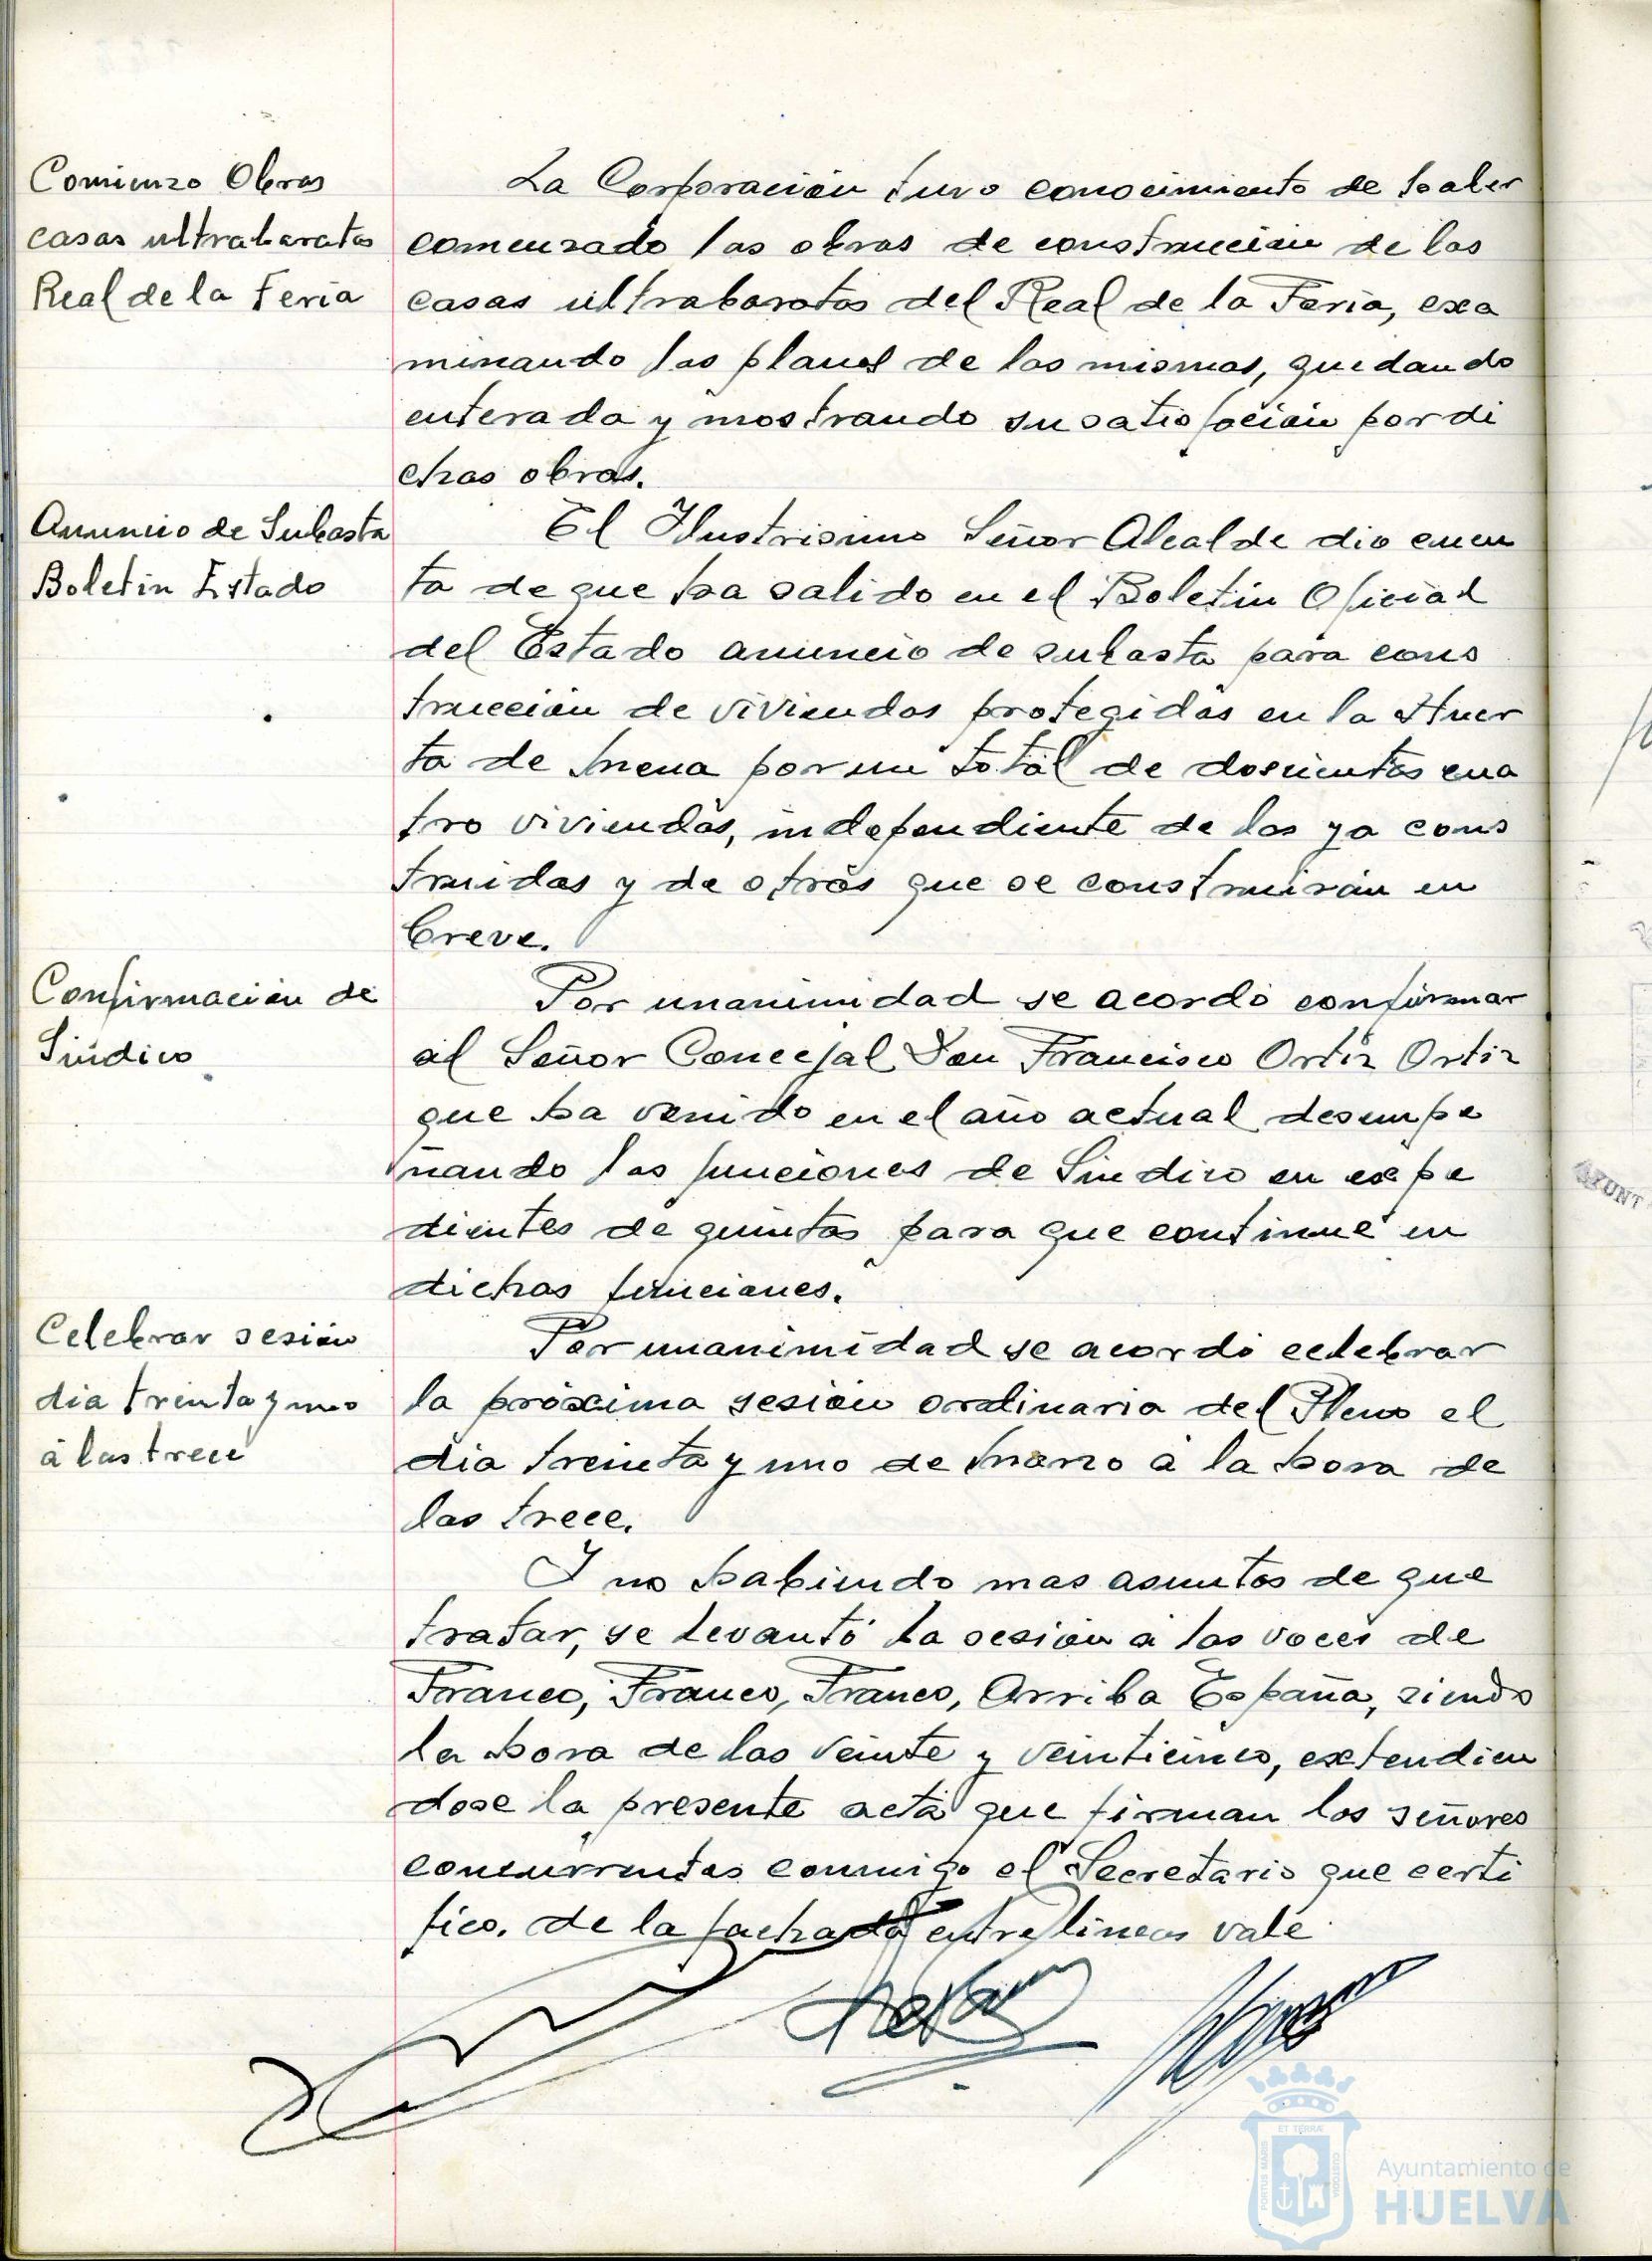 Comienzo Obras
casas ultrabaratas
Real de la Feria
La Corporación tuvo conocimiento de haber
comenzado las obras de construcción de las
casas ultrabaratas del Real de la Feria, exa
minando los planos de las mismas, quedando
enterada y mostrando su satisfacción por di
chas obras.
Anuncio de Subasta
Boletín Estado
El Ilustrisimo Señor Alcalde dio cuen
ta de que ha salido en el Boletin Oficial
del Estado anuncio de subasta para cons
trucción de viviendas protegidas en la Huer
ta de Mena por un total de doscientas cua
tro viviendas, independiente de las ya cons
truidas y de otras que se construirán en
breve.
Confirmación de
Síndico
Por unanimidad se acordó confirmar
al Señor Concejal Don Francisco Ortiz Ortiz
que ha venido en el año actual desempe
ñando las funciones de Síndico en expe
dientes de quintas para que continue en
dichas funciones.
Celebrar sesión
dia treinta y uno
á las trece
Por unanimidad se acordó celebrar
la próxima sesión ordinaria del Pleno el
dia treinta y uno de Marzo á la hora de
las trece.
Y no habiendo mas asuntos de que
tratar, se levantó la sesión a las voces de
Franco, Franco, Franco, Arriba España, siendo
la hora de las veinte y veinticinco, extendien
dose la presente acta que firman los señores
concurrentes conmigo el Secretario que certi
fico. de la fachada entre lineas vale
AYUNT
ET TERRÆ
PORTUS MARIS
CUSTODIA
Ayuntamiento de
HUELVA